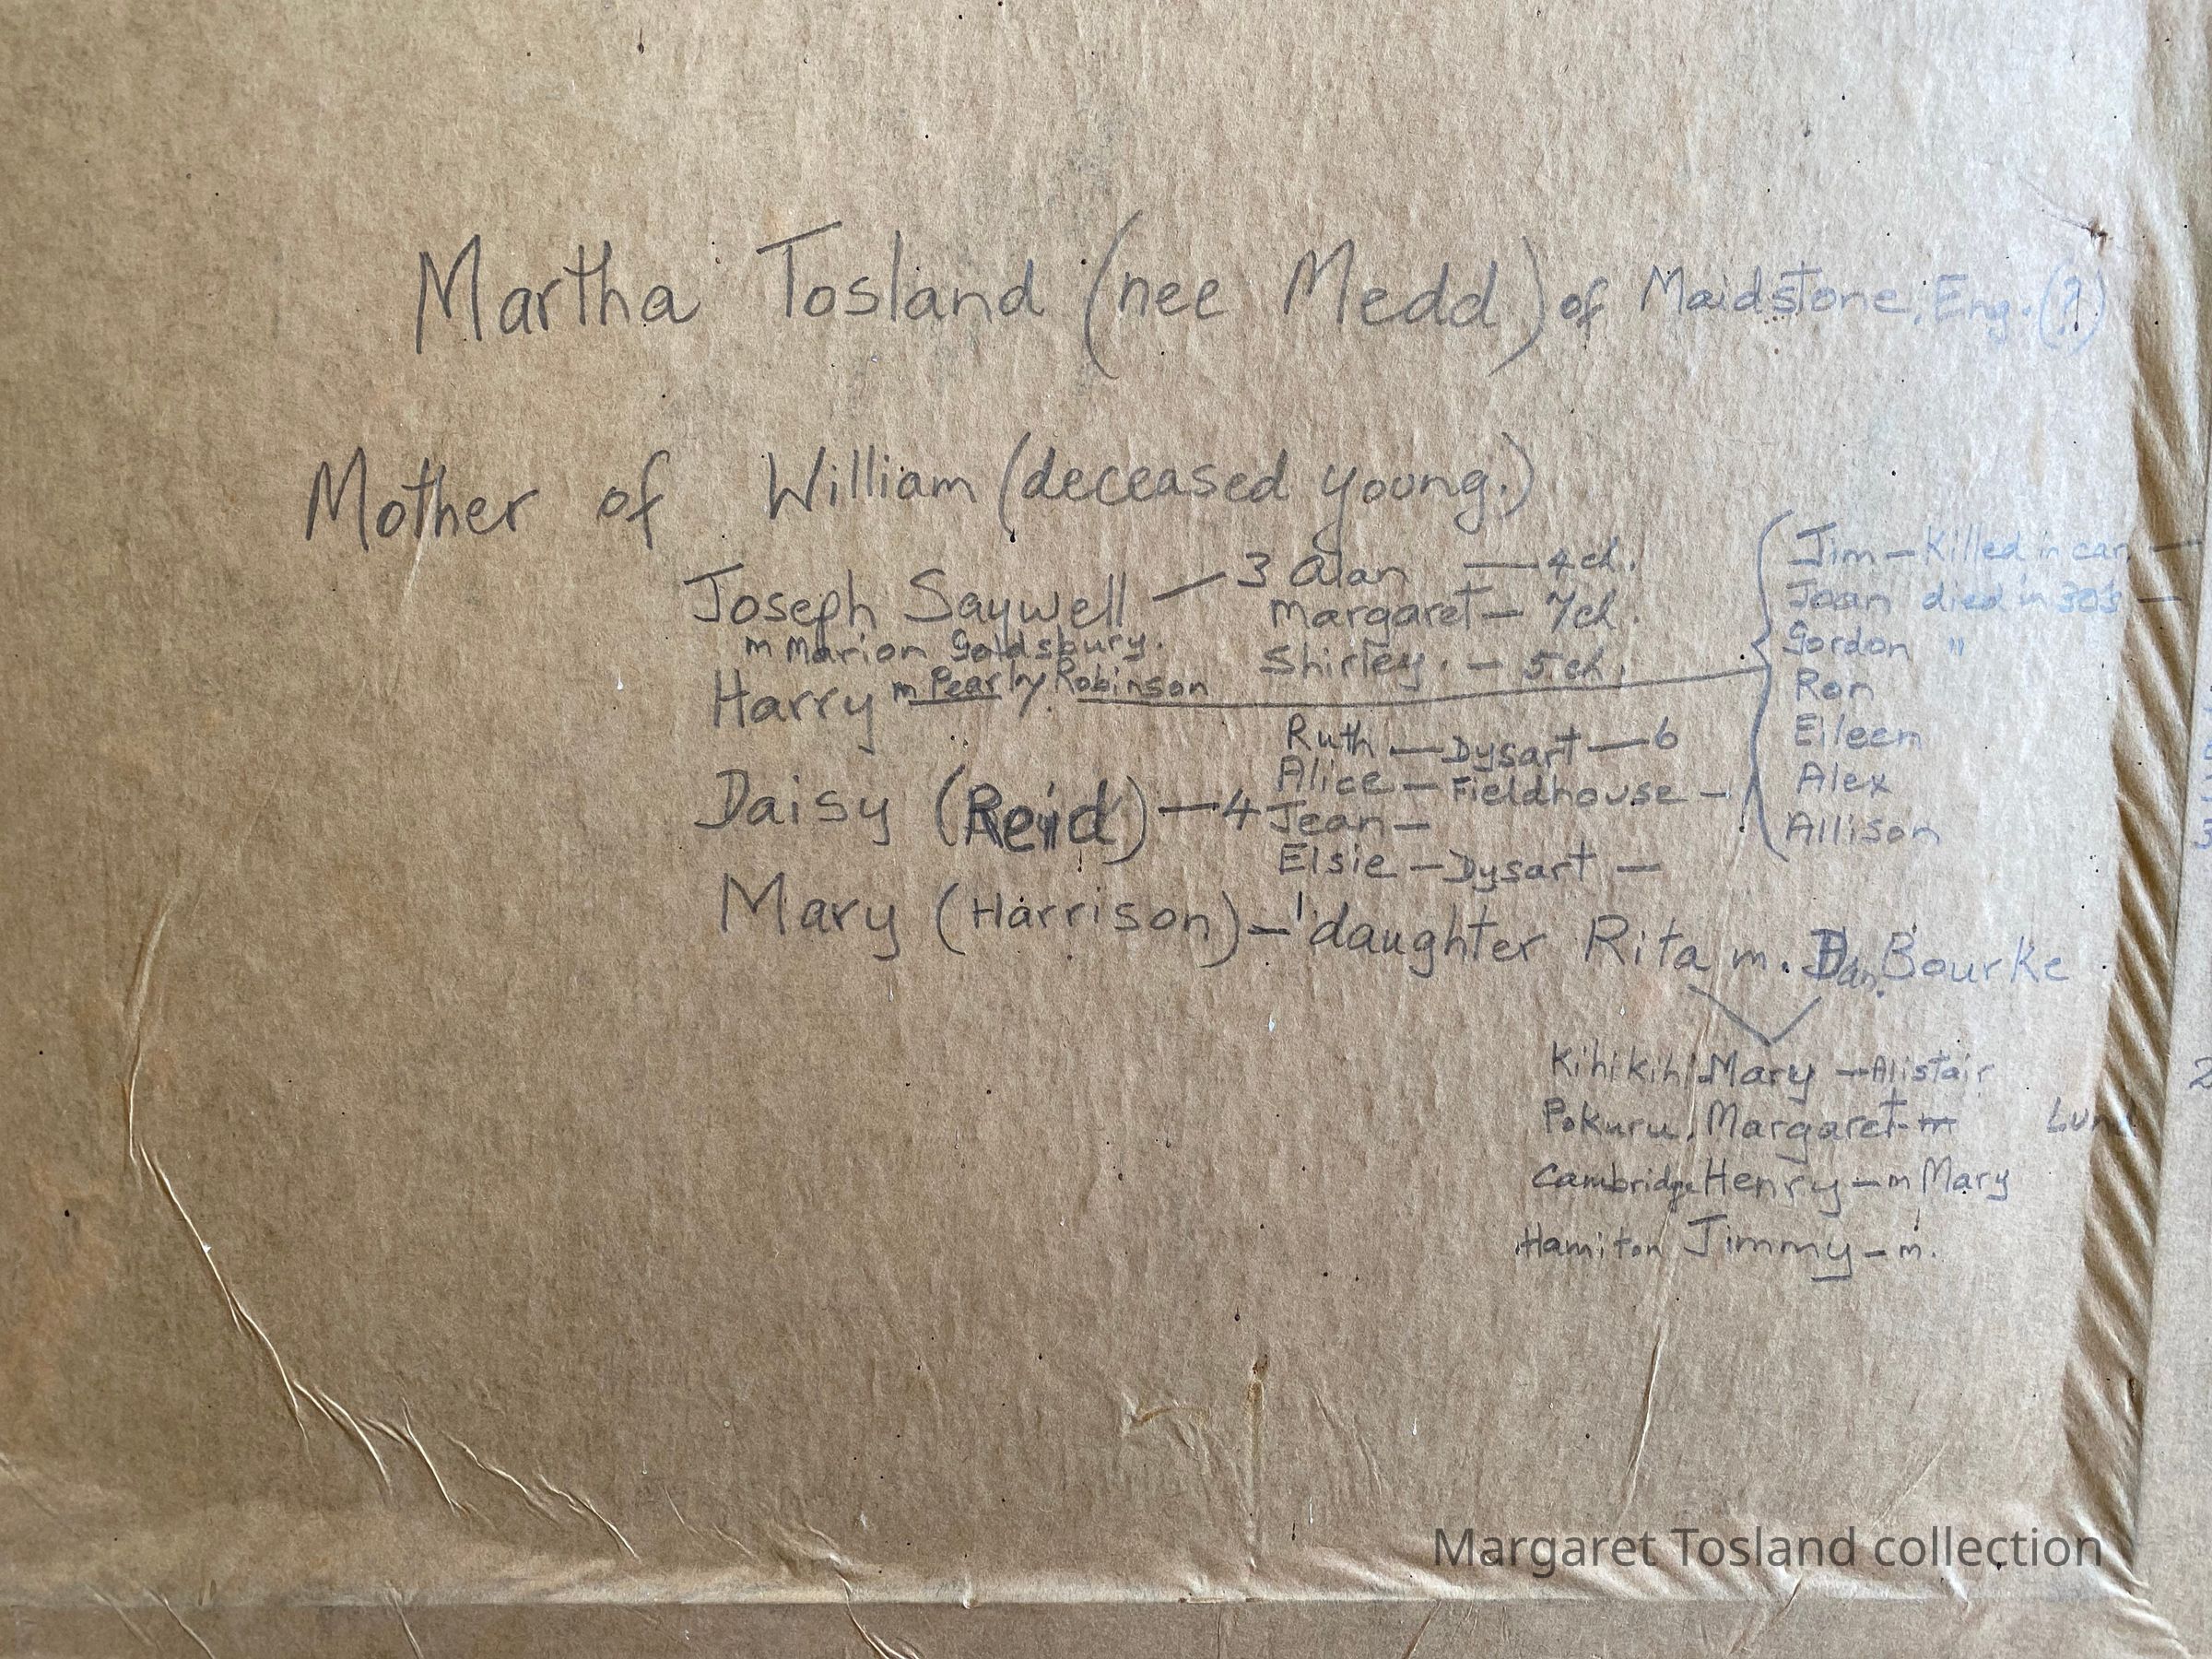 Martha Tosland (nee Medd) of Maidstone, Eng. (?)
Mother of William (deceased young.)
Joseph Saywell — 3 Alan — 4 ch.
m Marion Goldsbury. Margaret — 7 ch.
Shirley. — 5 ch.
Harry m Pearl Robinson
Jim — Killed in car —
Joan died in 30's —
Gordon "
Ron
Eileen
Alex
Allison
Daisy (Reid) — 4
Ruth — Dysart — 6
Alice — Fieldhouse —
Jean —
Elsie — Dysart —
Mary (Harrison) — 1 daughter Rita m. Dan. Bourke
Kihikihi Mary — Alistair
Pokuru. Margaret - m
Cambridge Henry — m Mary
Hamiton Jimmy — m.
Margaret Tosland collection